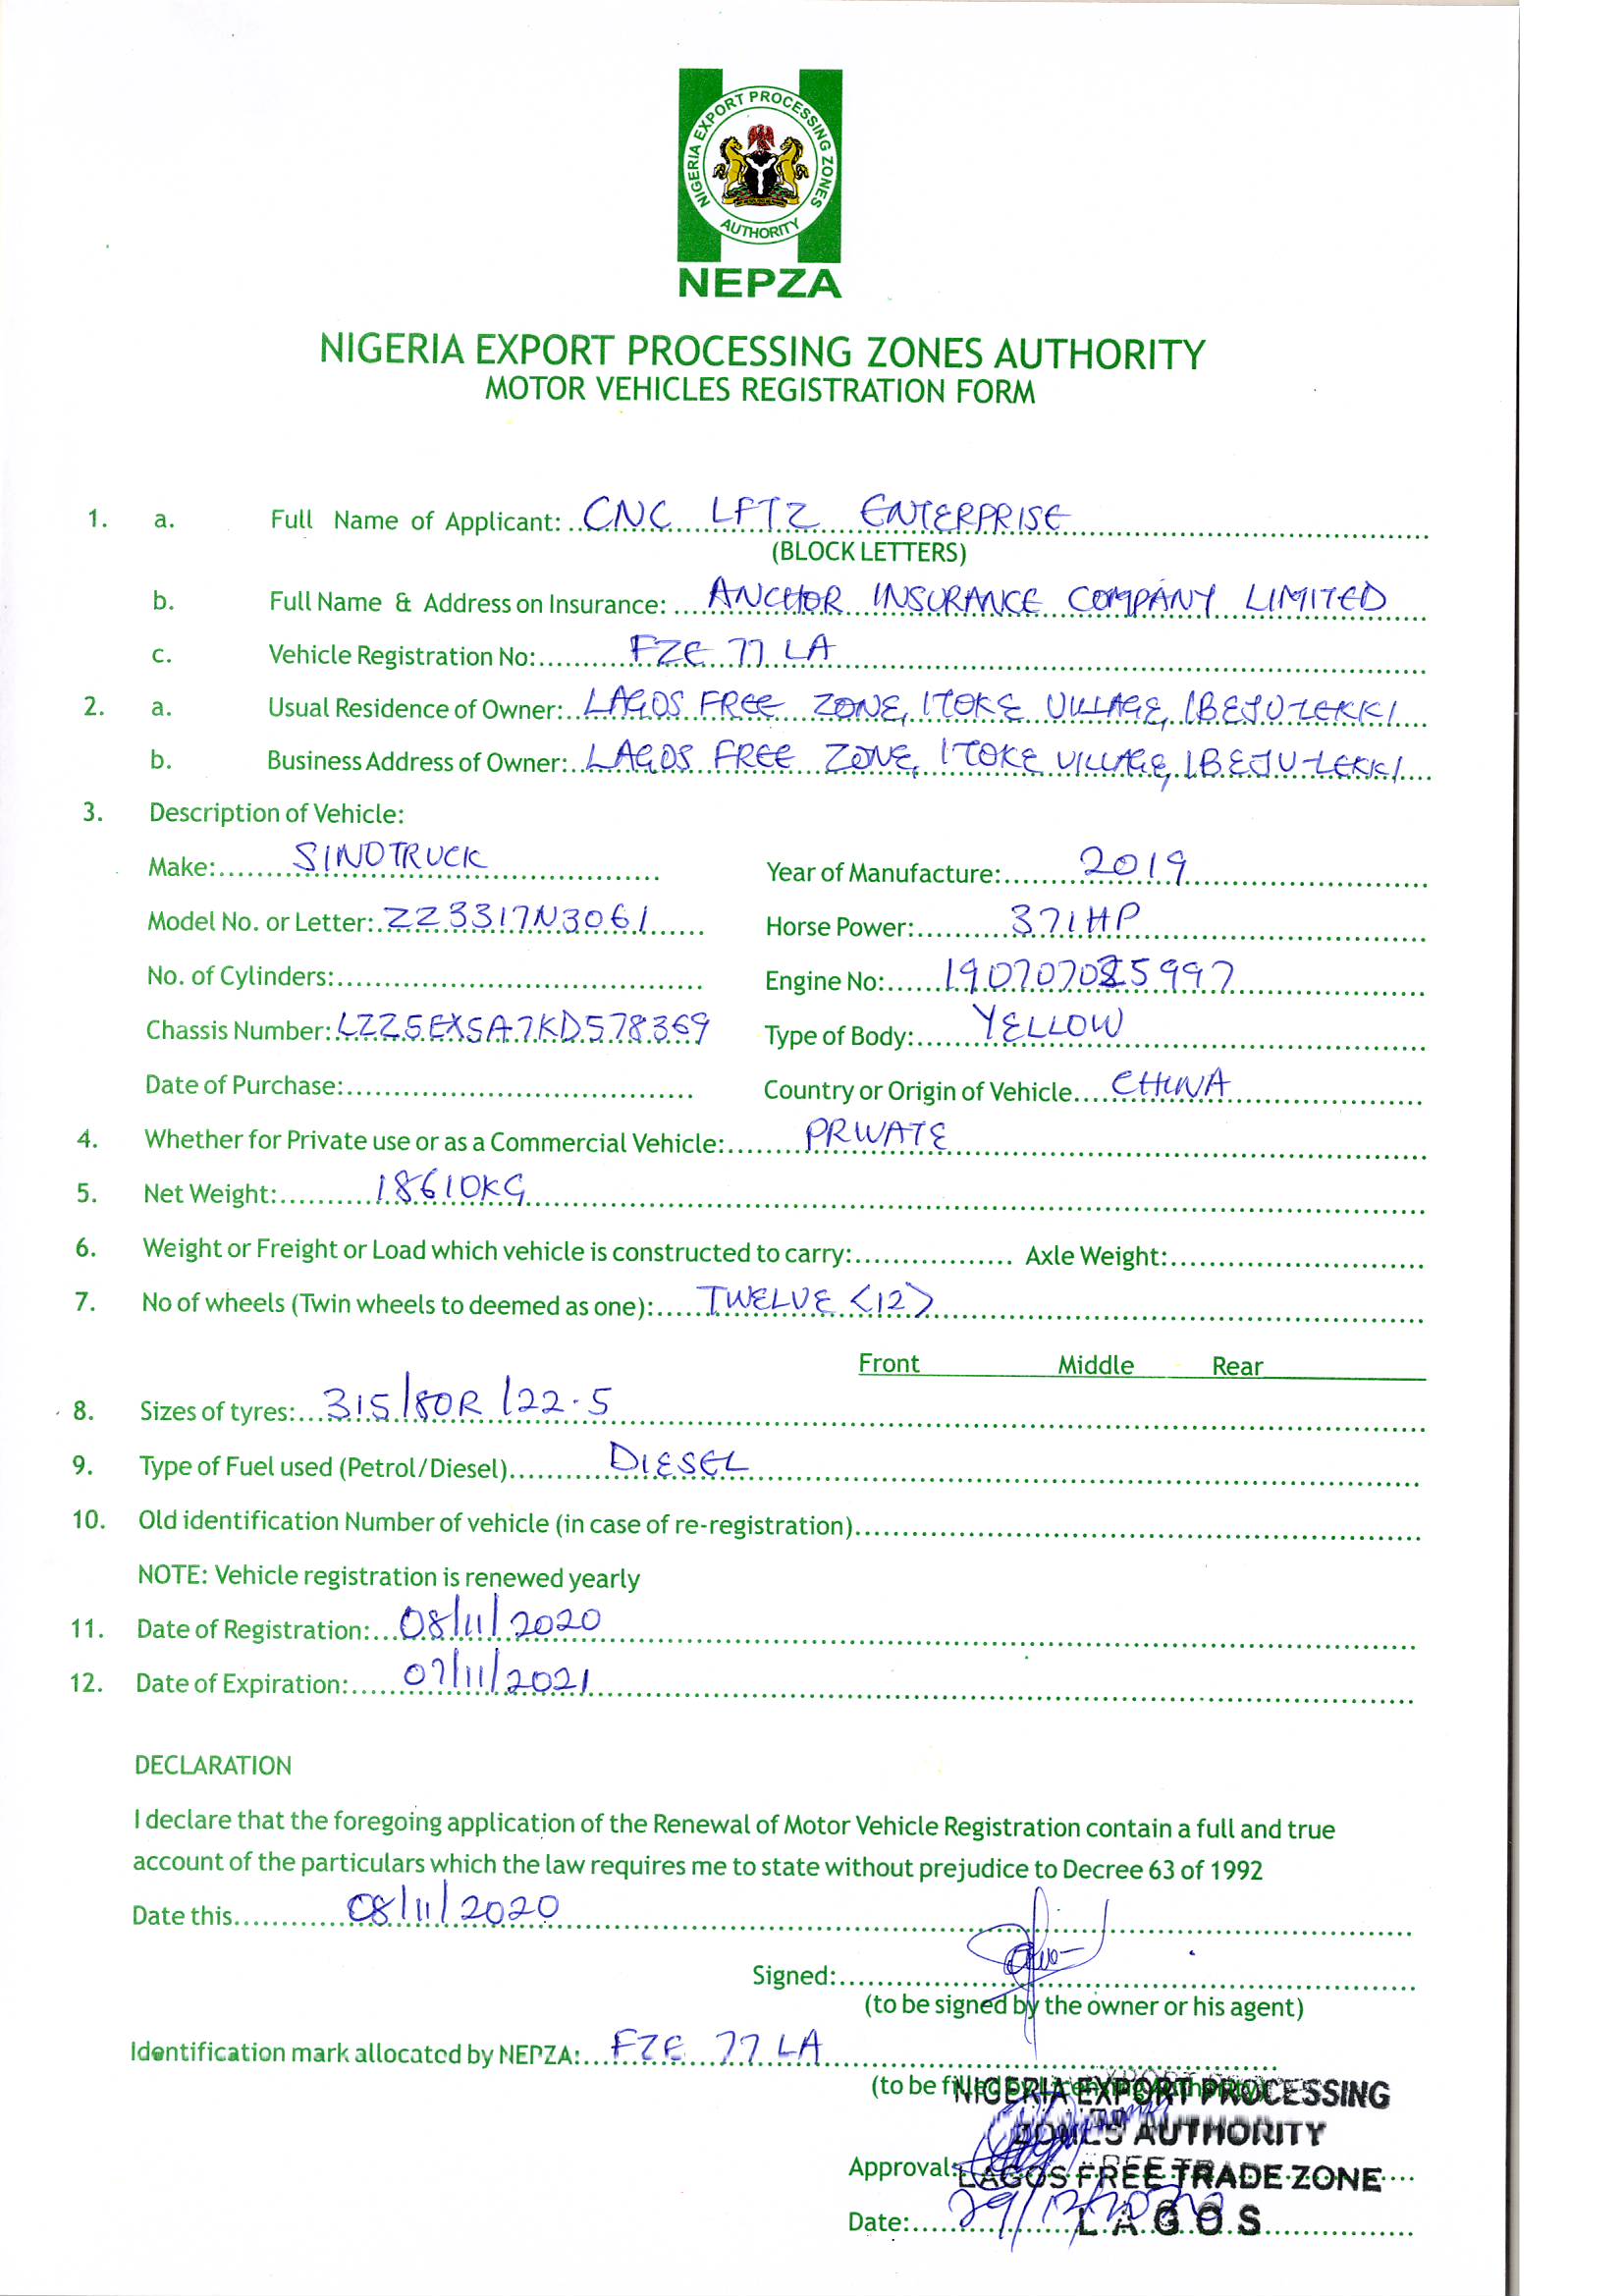 NIGERIA EXPORT PROCESSING ZONES
AUTHORITY
NEPZA
NIGERIA EXPORT PROCESSING ZONES AUTHORITY
MOTOR VEHICLES REGISTRATION FORM
1. a. Full Name of Applicant: CNC LFTZ ENTERPRISE
(BLOCK LETTERS)
b. Full Name & Address on Insurance: ANCHOR INSURANCE COMPANY LIMITED
c. Vehicle Registration No: FZE 77 LA
2. a. Usual Residence of Owner: LAGOS FREE ZONE, ITOKE VILLAGE, IBEJU-LEKKI
b. Business Address of Owner: LAGOS FREE ZONE, ITOKE VILLAGE, IBEJU-LEKKI
3. Description of Vehicle:
Make: SINOTRUCK Year of Manufacture: 2019
Model No. or Letter: ZZ3317N3061 Horse Power: 371HP
No. of Cylinders: Engine No: 190707025997
Chassis Number: LZZ5EXSA7KD578369 Type of Body: YELLOW
Date of Purchase: Country or Origin of Vehicle CHINA
4. Whether for Private use or as a Commercial Vehicle: PRIVATE
5. Net Weight: 18610KG
6. Weight or Freight or Load which vehicle is constructed to carry: Axle Weight:
7. No of wheels (Twin wheels to deemed as one): TWELVE <12>
Front Middle Rear
8. Sizes of tyres: 315/80R/22.5
9. Type of Fuel used (Petrol/Diesel) DIESEL
10. Old identification Number of vehicle (in case of re-registration)
NOTE: Vehicle registration is renewed yearly
11. Date of Registration: 08/11/2020
12. Date of Expiration: 07/11/2021
DECLARATION
I declare that the foregoing application of the Renewal of Motor Vehicle Registration contain a full and true
account of the particulars which the law requires me to state without prejudice to Decree 63 of 1992
Date this 08/11/2020
Signed:
(to be signed by the owner or his agent)
Identification mark allocated by NEPZA: FZE 77 LA
(to be filled by Licensing Authority)
NIGERIA EXPORT PROCESSING
ZONES AUTHORITY
Approval: LAGOS FREE TRADE ZONE
Date: 29/12/2020 LAGOS